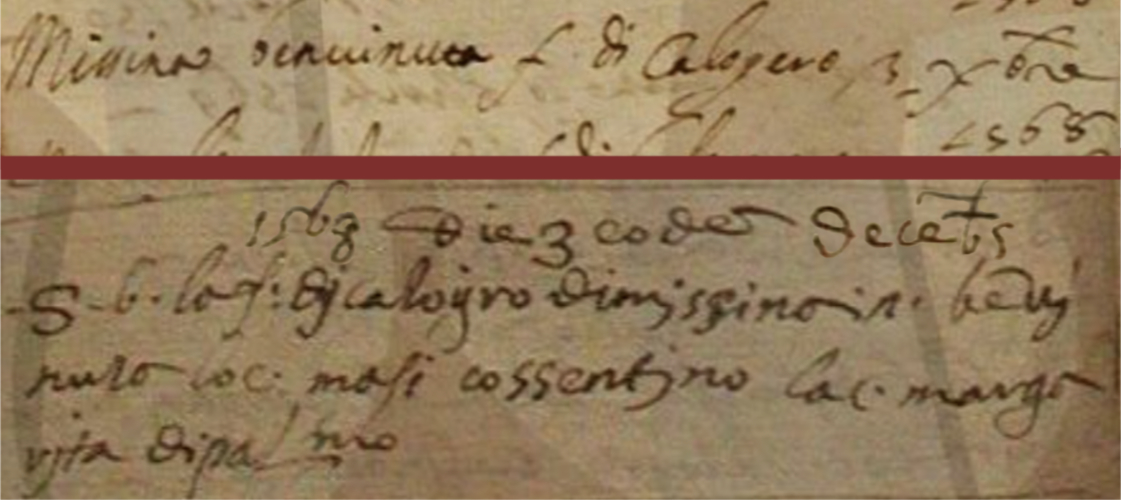 Missina benvinuta f. di Calogero 3 Xbre
1568
1568 die 3 eodem decebs
S. b. la f: dj calogiro dimissina in. benvj
nuta loc. masi cossentjno la c. marga
rita di palmo